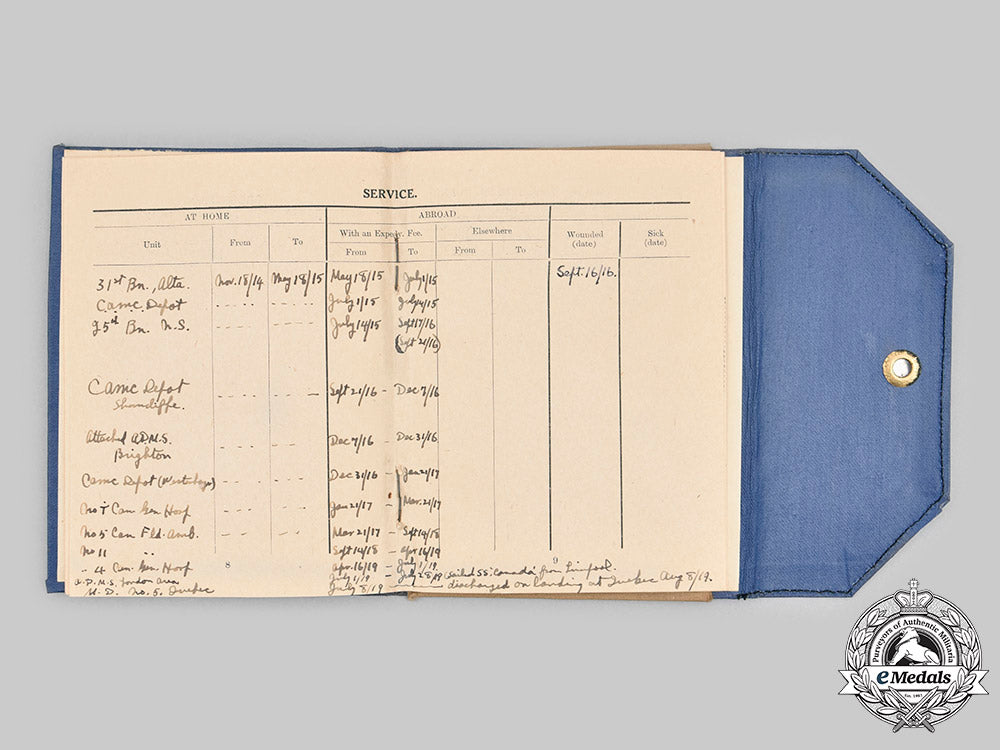 SERVICE.
AT HOME ABROAD
Unit From To With an Expedy. Fee. Elsewhere Wounded (date) Sick (date)
From To From To
31st Bn., Alta. Nov. 18/14 May 18/15 May 18/15 July 1/15 Sept. 16/16.
C.a.m.c. Depot - - - - - - - - July 1/15 July 14/15
25th Bn. N.S. - - - - - - - July 14/15 Sept 17/16
(Sept 21/16)
Camc Depot - - - - - - - Sept 21/16 - Dec 7/16
Shorncliffe.
Attached A.D.M.S. - - - - - - Dec 7/16 - Dec 31/16
Brighton
Camc Depot - - - - - - Dec 31/16 - Jan 21/17
No Can Gen Hosp - - - - - - Jan 21/17 - Mar. 21/17
No 5 Can Fld. Amb. - - - - - - Mar 21/17 - Sept 14/18
No 11 " Sept 14/18 - apr 16/19
8 9
" 4 Can. Gen. Hosp apr 16/19 - July 1/19.
A.D.M.S. London area July 1/19 - July 28/19 (sailed SS. "Canada" from Liverpool.
M.D. No. 5. Quebec July 8/19 discharged on landing at Quebec Aug 8/19.
Purveyors of Authentic Militaria
eMedals
Est. 1967